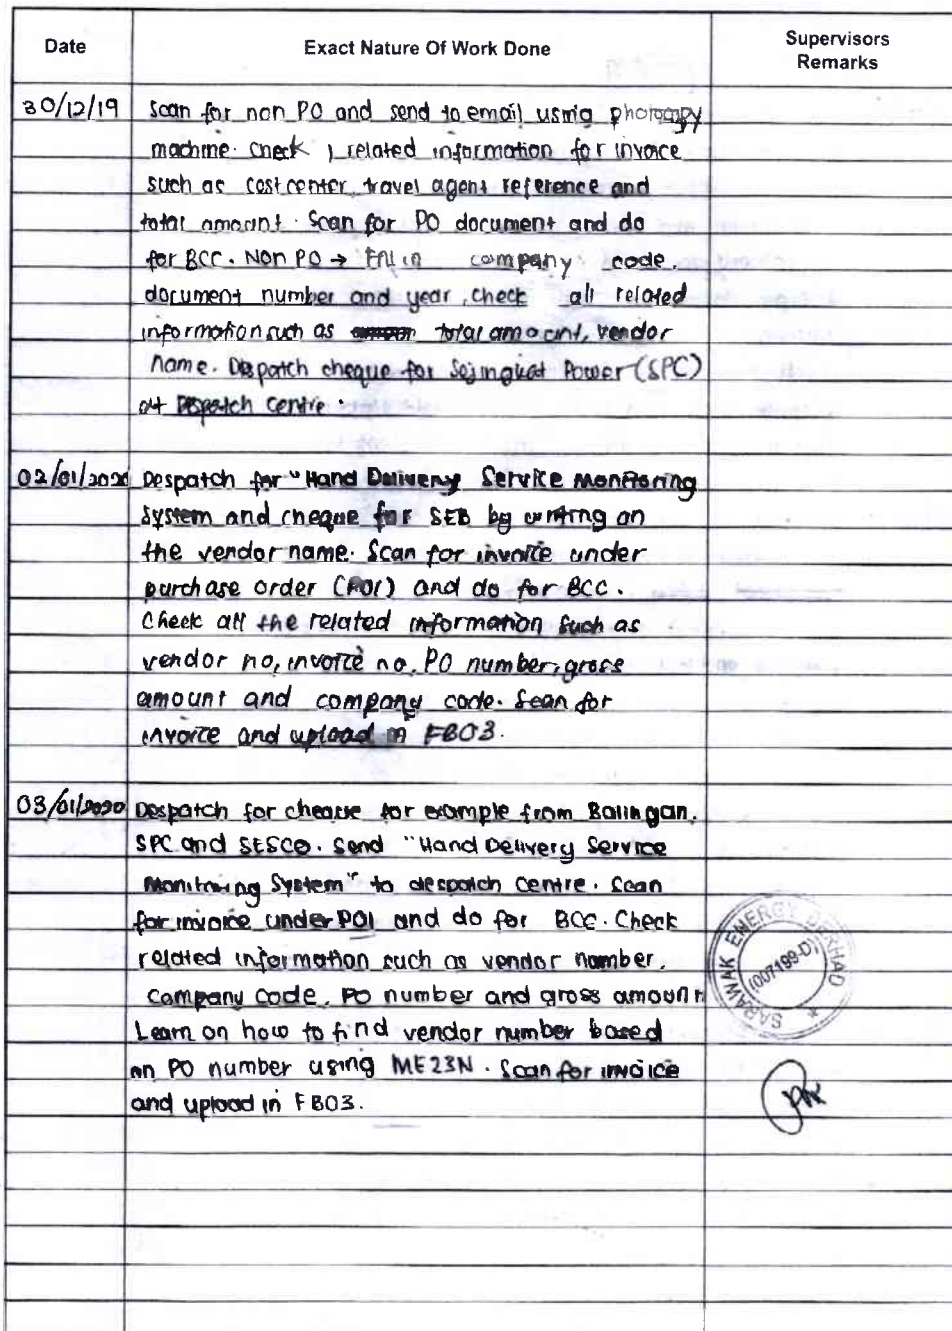 Date Exact Nature Of Work Done Supervisors
Remarks
30/12/19 Scan for non PO and send to email using photocopy
machine. Check , related information for invoice
such as cost center, travel agent reference and
total amount. Scan for PO document and do
for BCC. Non PO → Fill in company code,
document number and year, check all related
information such as total amount, vendor
name. Despatch cheque for Sejingkat Power (SPC)
at Despatch Centre.
02/01/2020 Despatch for "Hand Delivery Service Monitoring
System and cheque for SEB by writing on
the vendor name. Scan for invoice under
purchase order (PO1) and do for BCC.
Check all the related information such as
vendor no, invoice no, PO number, gross
amount and company code. Scan for
invoice and upload in FB03.
03/01/2020 Despatch for cheque for example from Balingan,
SPC and SESCO. Send "Hand Delivery Service
Monitoring System" to despatch centre. Scan
for invoice under PO1 and do for BCC. Check
related information such as vendor number,
Company Code, PO number and gross amount
Learn on how to find vendor number based
on PO number using ME23N. Scan for invoice
and upload in FB03.
SARAWAK ENERGY BERHAD
(007199-D)